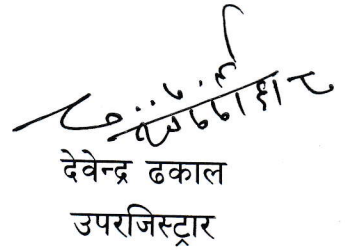 देवेन्द्र ढकाल
उपरजिस्ट्रार